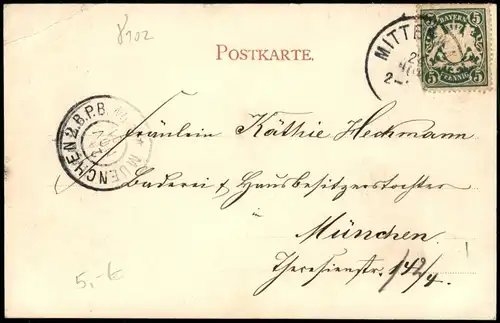 8902
POSTKARTE.
MITTE
BAYERN
5 5
PFENNIG
MUENCHEN 2.B.P.B.
Fräulein Käthie Heckmann
Baderei & Hausbesitzerstochter
München.
Theresienstr. 142/4.
5,-€